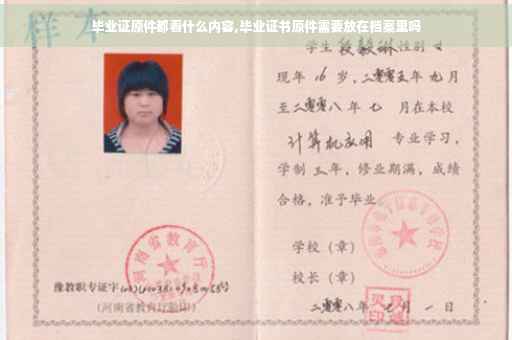 样本
毕业证原件都看什么内容,毕业证书原件需要放在档案里吗
学生段毅琳性别女
现年16岁,二零零五年九月
至二零零八年七月在本校
计算机应用 专业学习,
学制三年,修业期满,成绩
合格,准予毕业
学校(章)
校长(章)
二零零八年七月一日
河南省教育厅
豫教职专证字
(河南省教育厅验印)